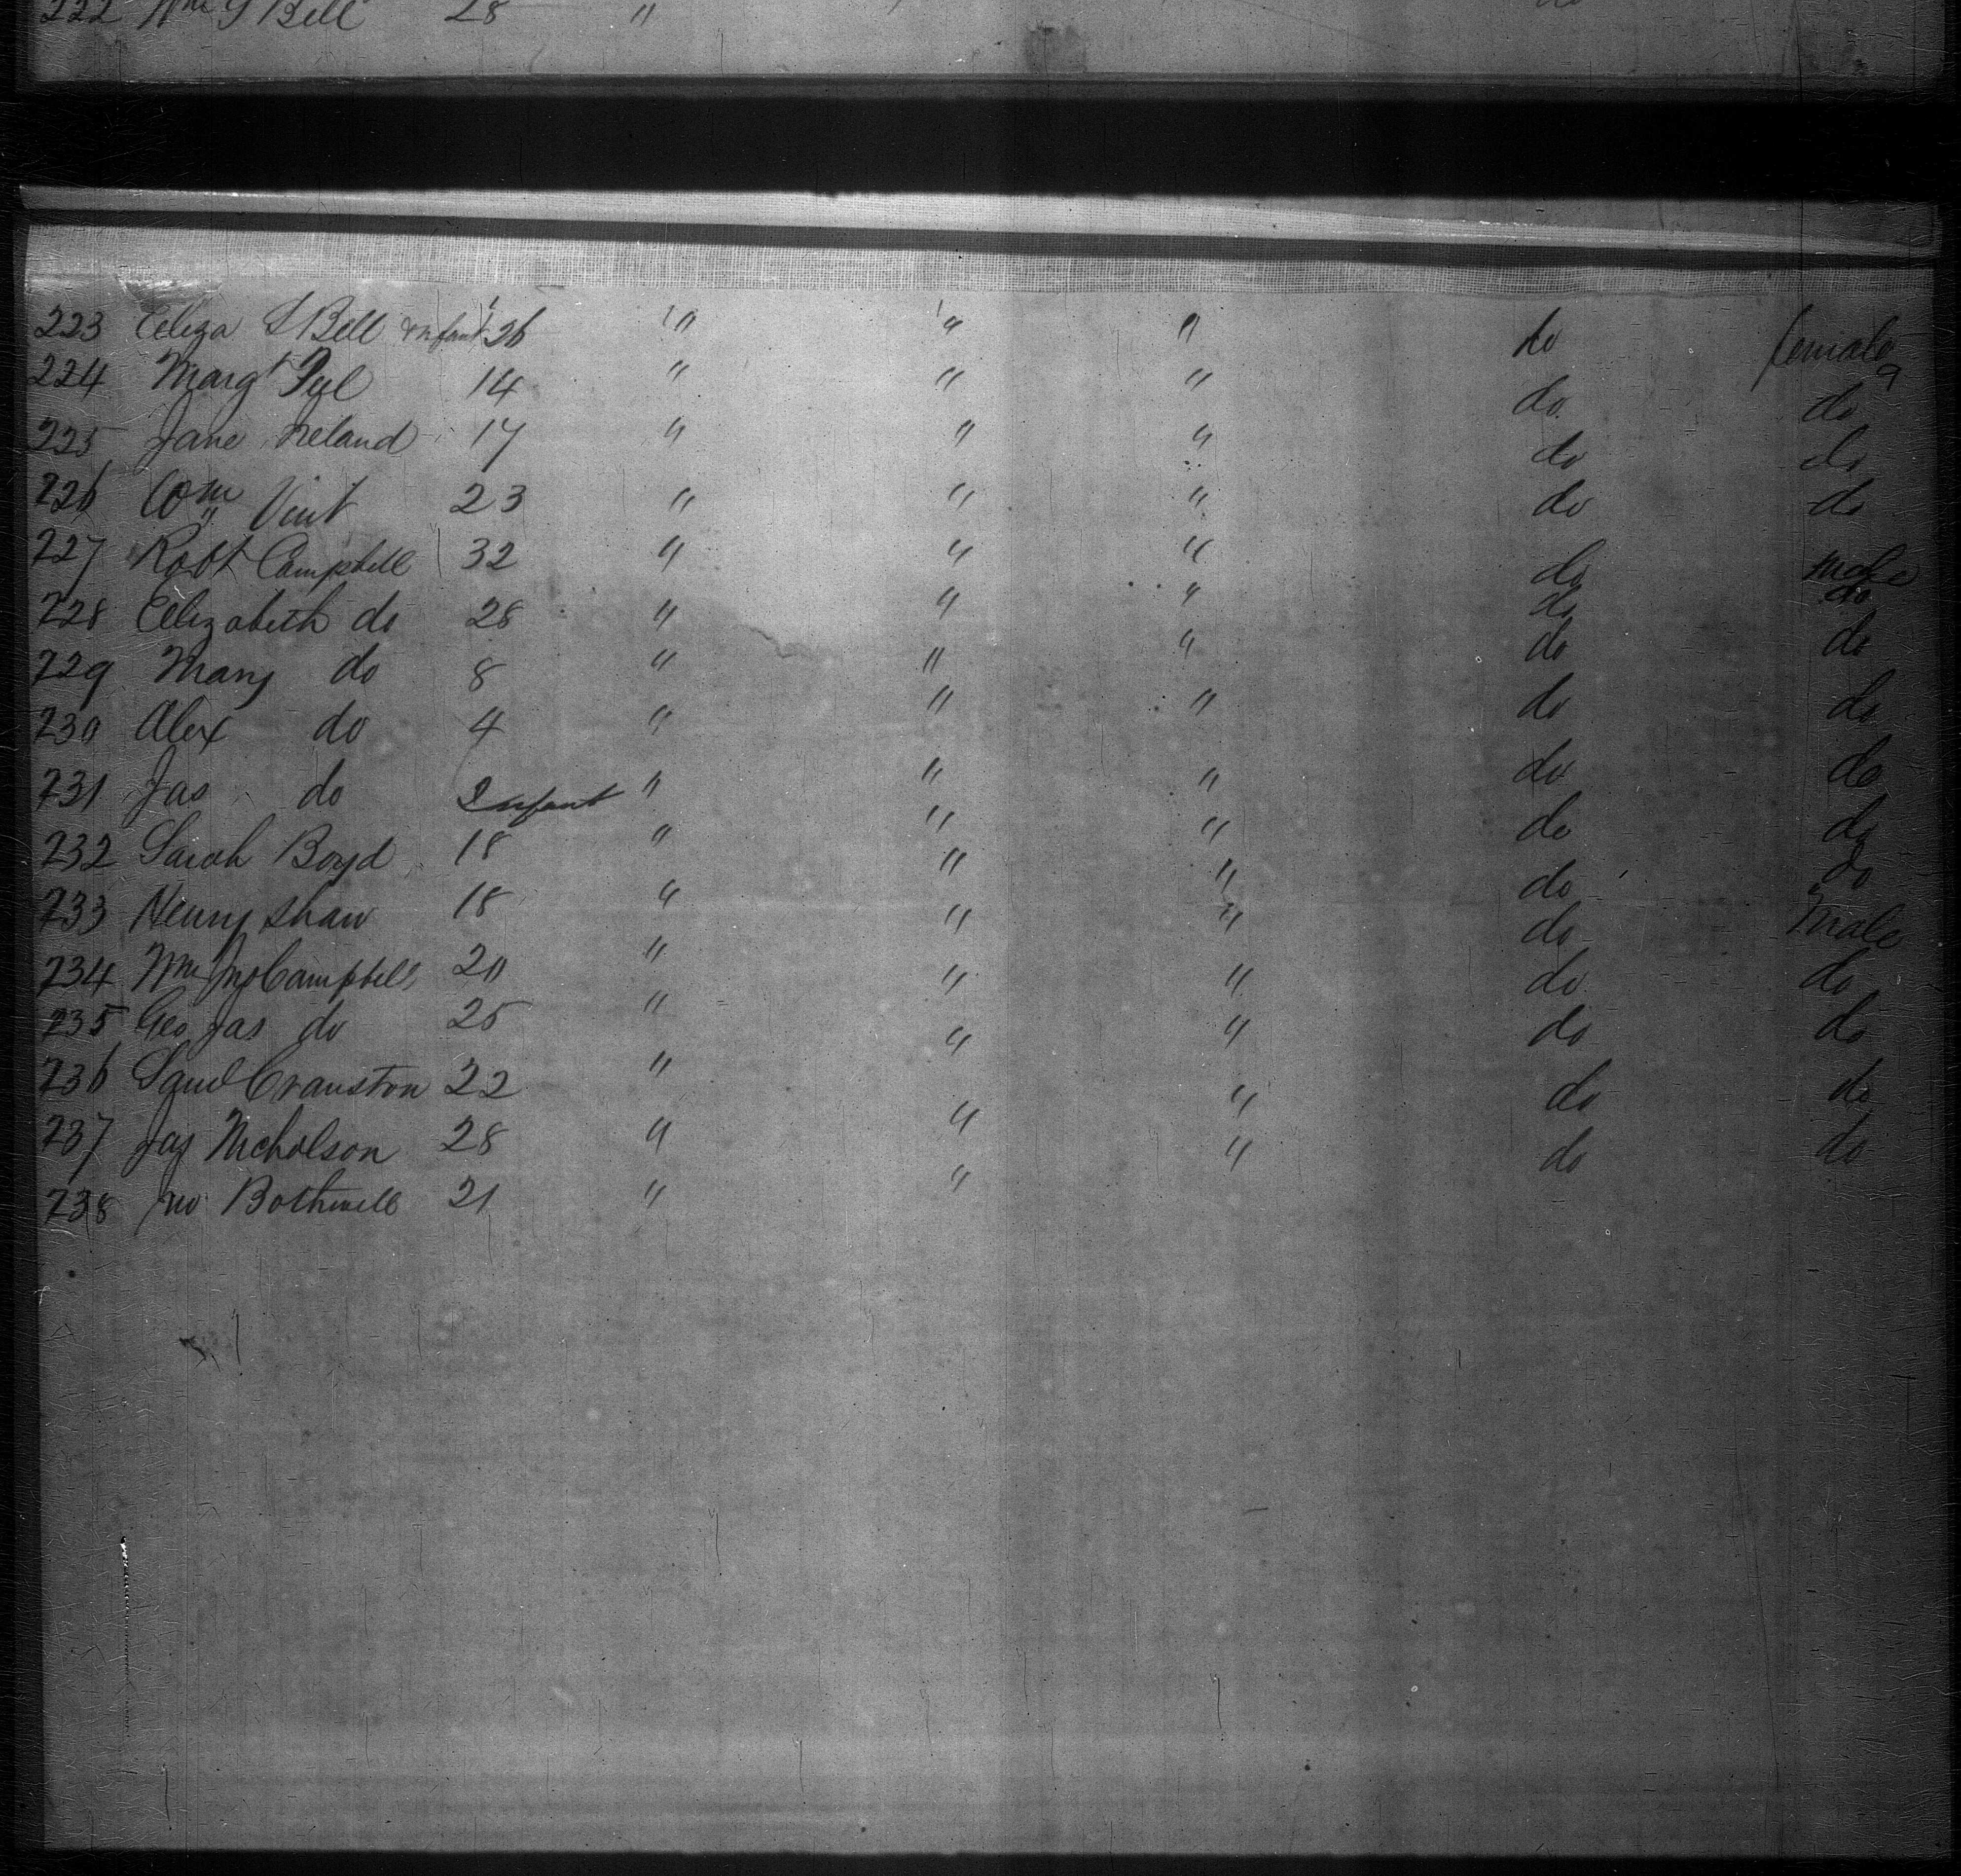 222 Wm G Bell 28 " do
223 Eliza S Bell & infant 26 " " " do female
224 Margt 14 " " " do do
225 Jane Ireland 17 " " " do do
226 Wm Vint 23 " " " do do
227 Robt Campbell 32 " " " do male
228 Elizabeth do 28 " " " do do
229 Mary do 8 " " " do do
230 Alex do 4 " " " do do
231 Jas do Infant " " " do do
232 Sarah Boyd 18 " " " do do
233 Henry Shaw 18 " " " do do
234 Wm Campbell 20 " " " do Male
235 Geo Jas do 25 " " " do do
236 Saml Cranston 22 " " " do do
237 Jas Nicholson 28 " " " do do
238 Jno Bothwell 21 " " " do do